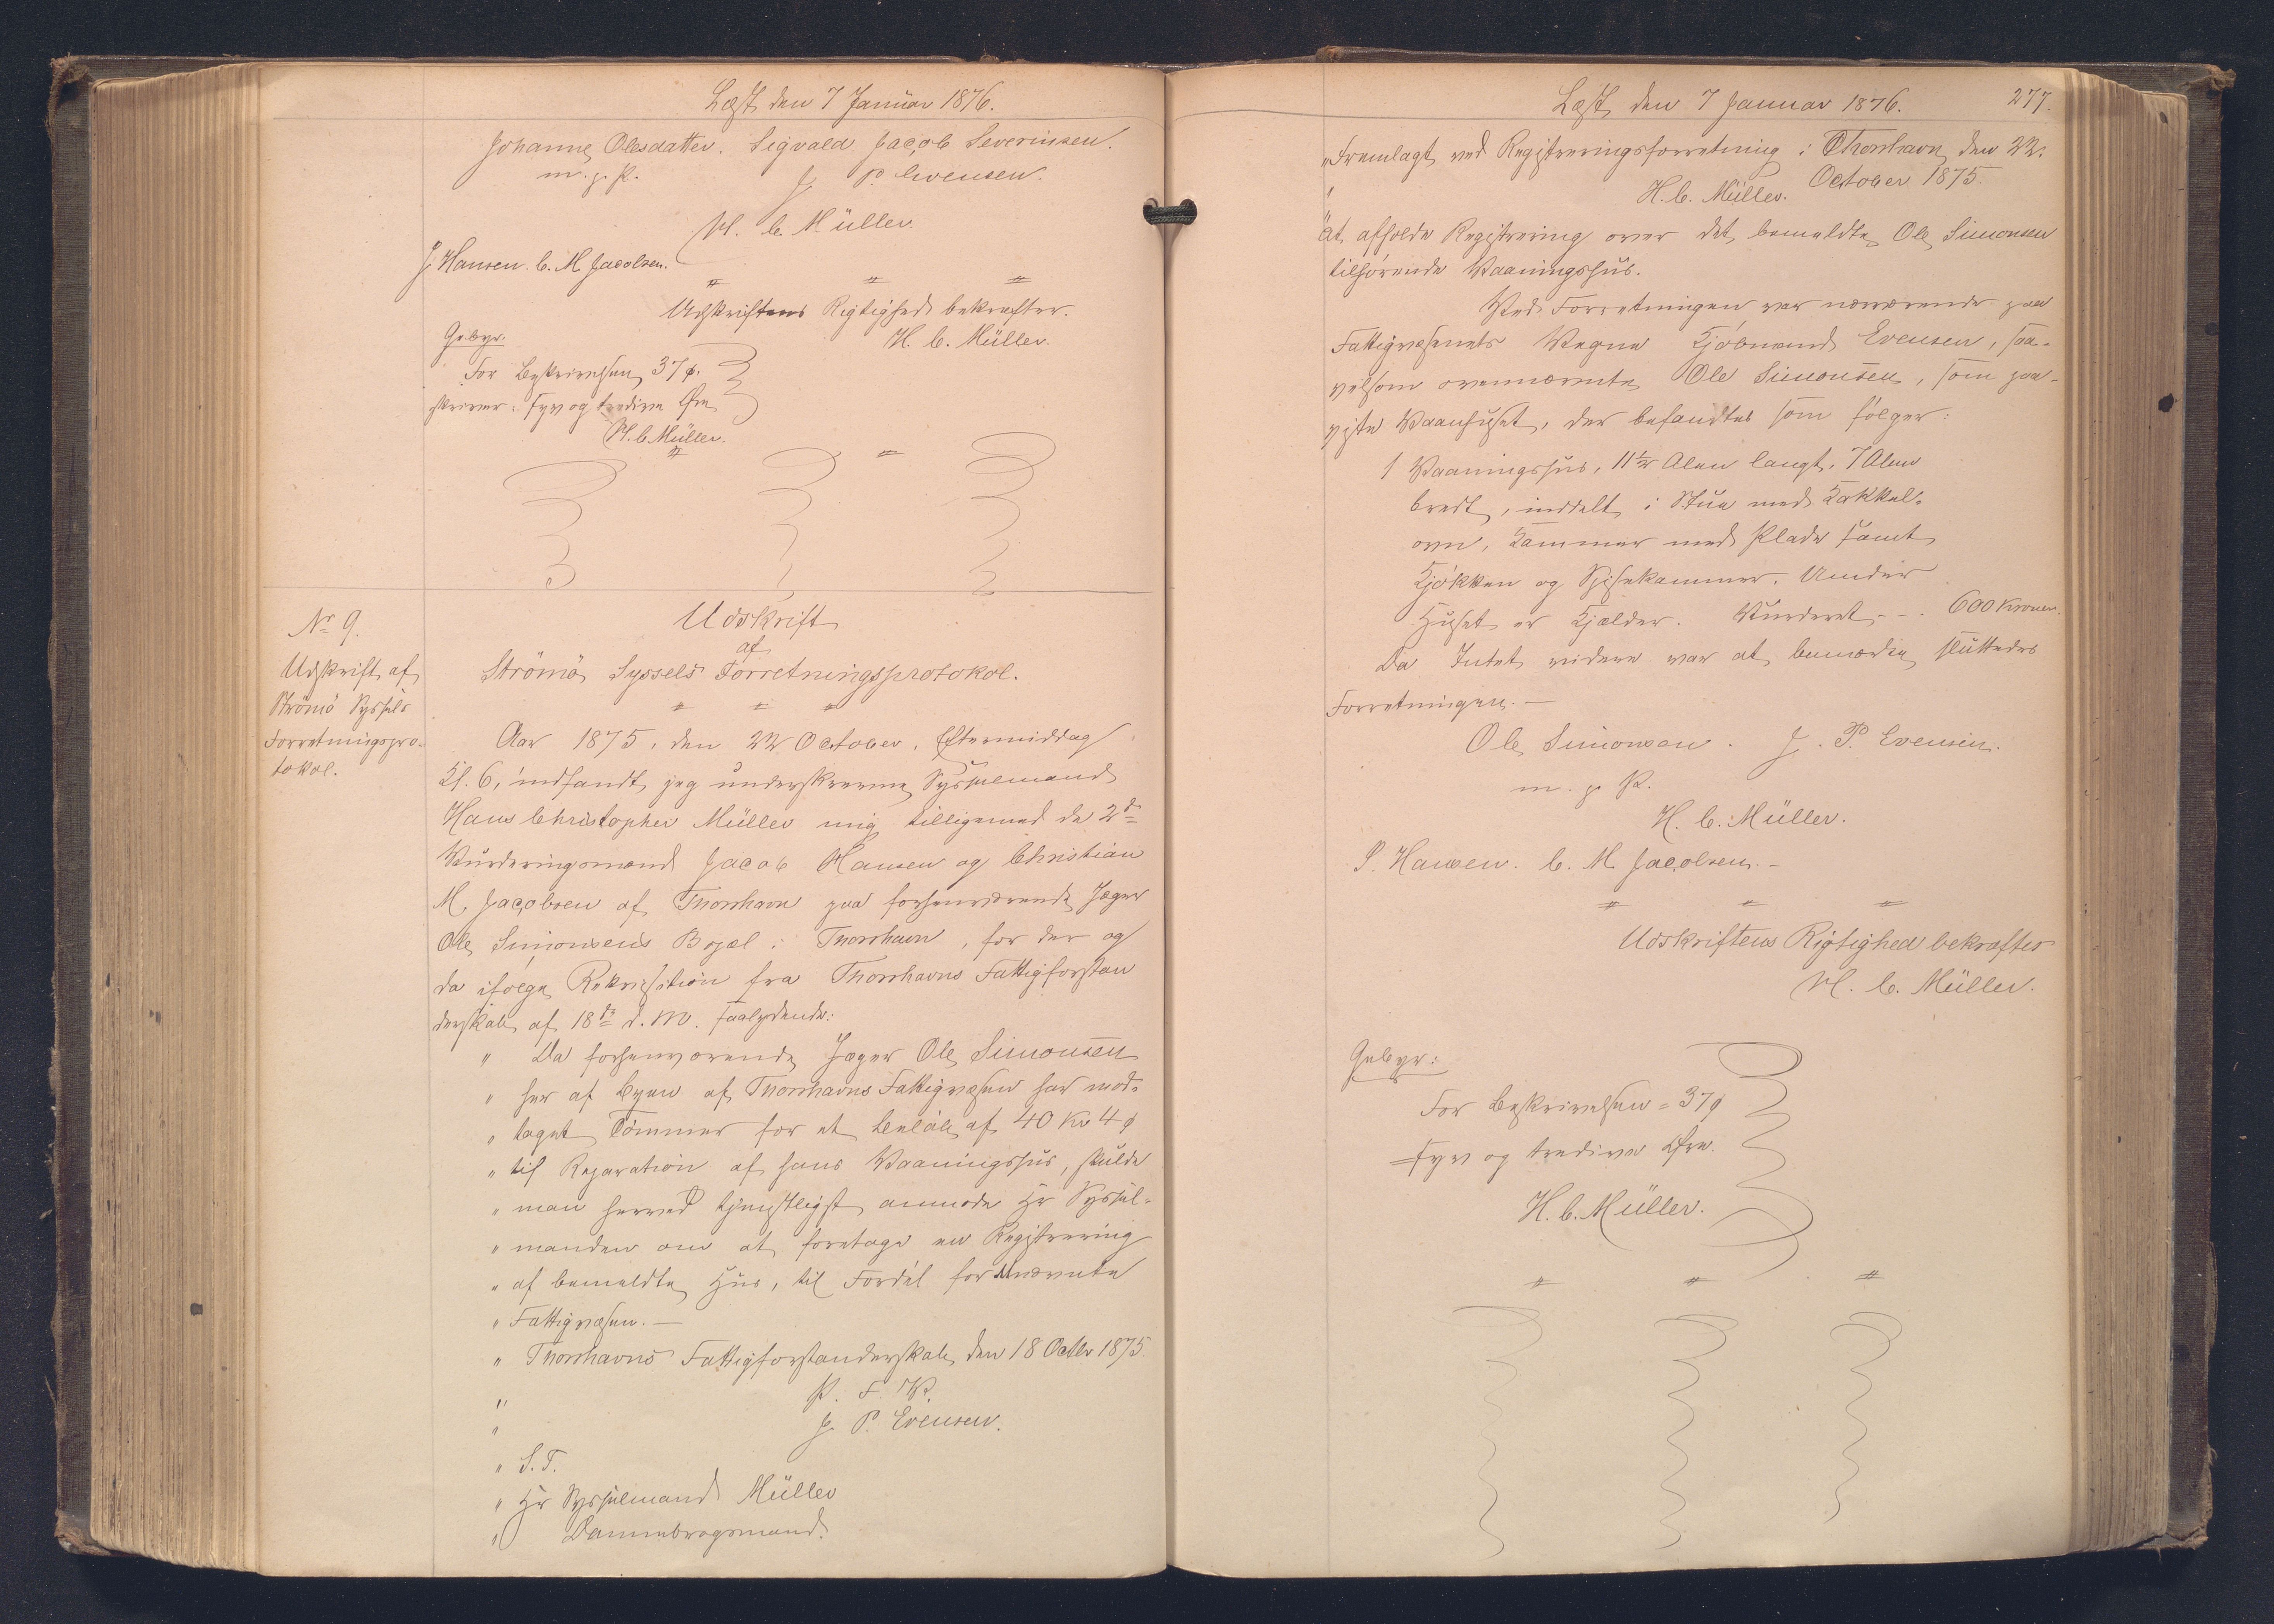 Læst den 7 Januar 1876.
Johanne Olesdatter. Sigvald Jacob Severinsen.
m. f. P. J. P. Evensen.
H. C. Müller.
J. Hansen. C. M. Jacobsen.
Udskriftens Rigtighed bekræfter.
H. C. Müller.
Gebyr.
For Beskrivelsen 37 ø.
skriver: syv og tredive Øre
H. C. Müller.
No 9.
Udskrift af
Strömö Syssels
Forretningspro-
tokol.
Udskrift
af
Strömö Syssels Forretningsprotokol.
Aar 1875, den 22 October, Eftermiddag
Kl. 6, indfandt jeg underskrevne Sysselmand
Hans Christopher Müller mig tilligemed de 2de
Vurderingsmænd Jacob Hansen og Christian
M. Jacobsen af Thorshavn paa forhenværende Jæger
Ole Simonsens Bopæl i Thorshavn, for der og
da ifølge Rekvisition fra Thorshavns Fattigforstan
derskab af 18de d. M. saalydende:
" Da forhenværende Jæger Ole Simonsen
" her af Byen af Thorshavns Fattigvæsen har mod-
" taget Tømmer for et Beløb af 40 Kr 4 ø
" til Reparation af hans Vaaningshus, skulde
" man herved tjenstligst anmode Hr Syssel-
" manden om at foretage en Registrering
" af bemeldte Hus, til Fordel for nævnte
" Fattigvæsen. —
" Thorshavns Fattigforstanderskab, den 18 Octbr 1875.
" P. F. V.
" J. P. Evensen.
" S. T.
" Hr Sysselmand Müller
" Dannebrogsmand.
Læst den 7 Januar 1876. 277.
" Fremlagt ved Registreringsforretning i Thorshavn den 22.
" October 1875.
H. C. Müller.
at afholde Registrering over det bemeldte Ole Simonsen
tilhørende Vaaningshus.
Ved Forretningen var nærværende paa
Fattigvæsenets Vegne Kjøbmand Evensen, saa-
velsom ovennævnte Ole Simonsen, som paa-
viste Vaanhuset, der befandtes som følger:
1 Vaaningshus, 11½ Alen langt, 7 Alen
bredt, inddelt i Stue med Kakkel-
ovn, Kammer med Plade samt
Kjøkken og Spisekammer. Under
Huset er Kjælder. Vurderet - - - 600 Kroner.
Da Intet videre var at bemærke, sluttedes
Forretningen. —
Ole Simonsen. J. P. Evensen.
m. f. P.
H. C. Müller.
J. Hansen. C. M. Jacobsen. —
Udskriftens Rigtighed bekræfter
H. C. Müller.
Gebyr:
For Beskrivelsen = 37 ø
syv og tredive Øre.
H. C. Müller.